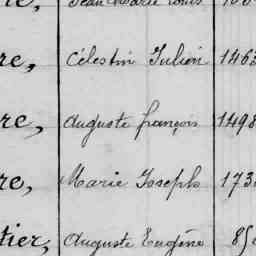 re, Célestin Julien 146
re, Auguste françois 1498
re, Marie Joseph 173
tier, Auguste Eugène 85